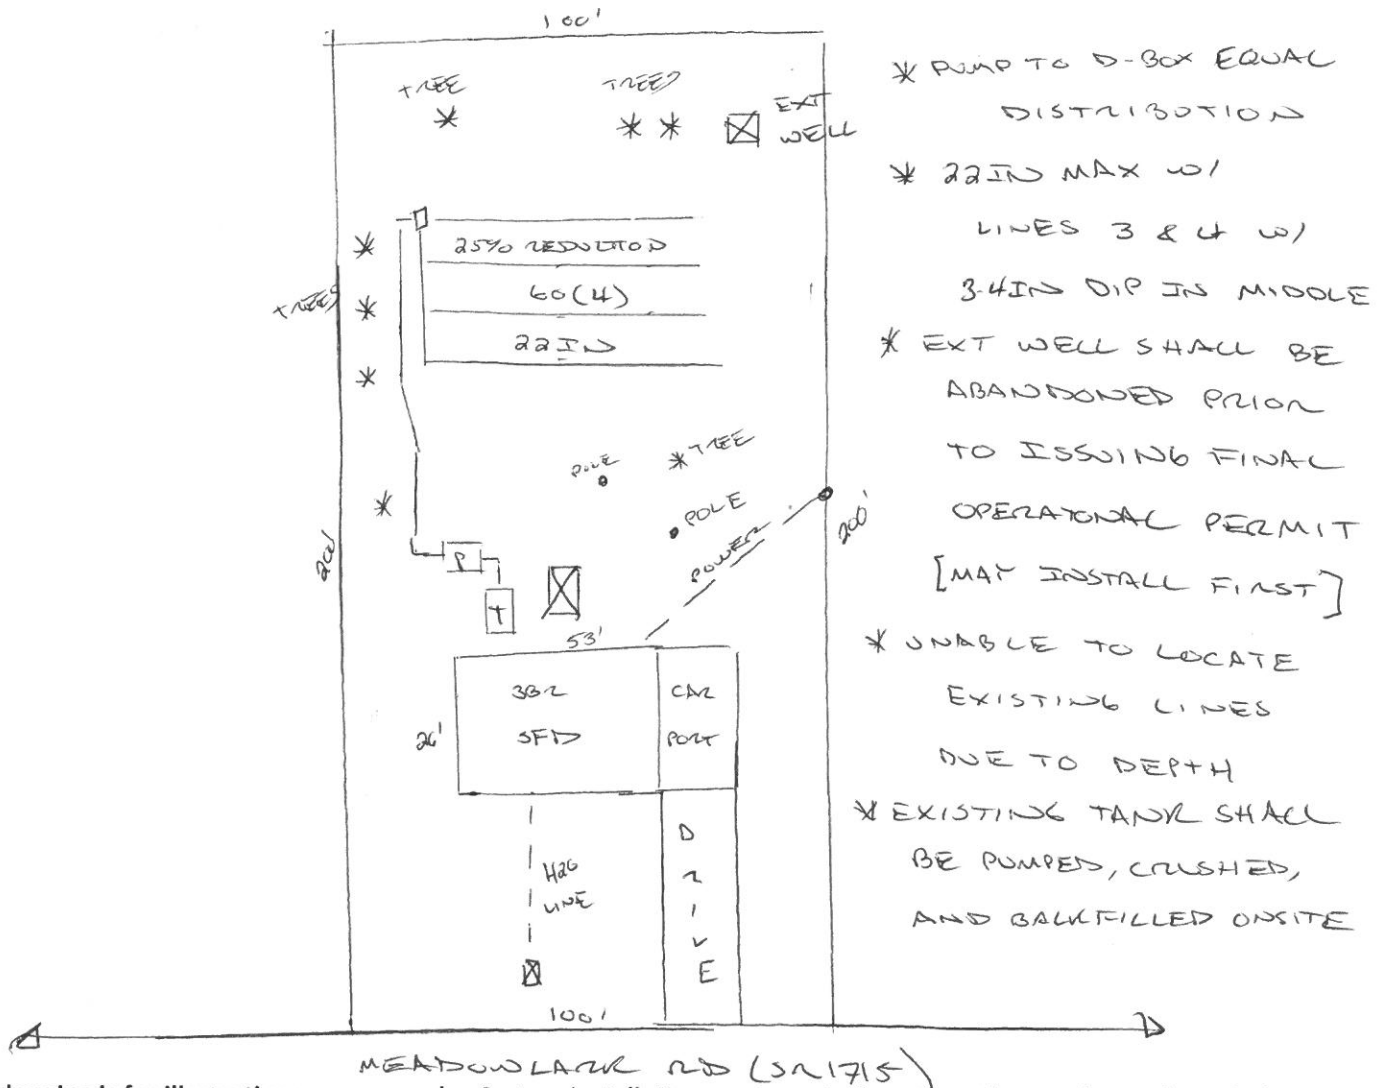 100'
TREE
TREES
EXT
WELL
25% REDUCTION
60(4)
22IN
TREES
POLE
TREE
POLE
POWER
200'
200'
P
T
53'
26'
3BR
SFD
CAR
PORT
H2O
LINE
DRIVE
100'
MEADOWLARK RD (SR1715)
* PUMP TO D-BOX EQUAL
DISTRIBUTION
* 22IN MAX W/
LINES 3 & 4 W/
3-4IN DIP IN MIDDLE
* EXT WELL SHALL BE
ABANDONED PRIOR
TO ISSUING FINAL
OPERATONAL PERMIT
[MAY INSTALL FIRST]
* UNABLE TO LOCATE
EXISTING LINES
DUE TO DEPTH
* EXISTING TANK SHALL
BE PUMPED, CRUSHED,
AND BACKFILLED ONSITE